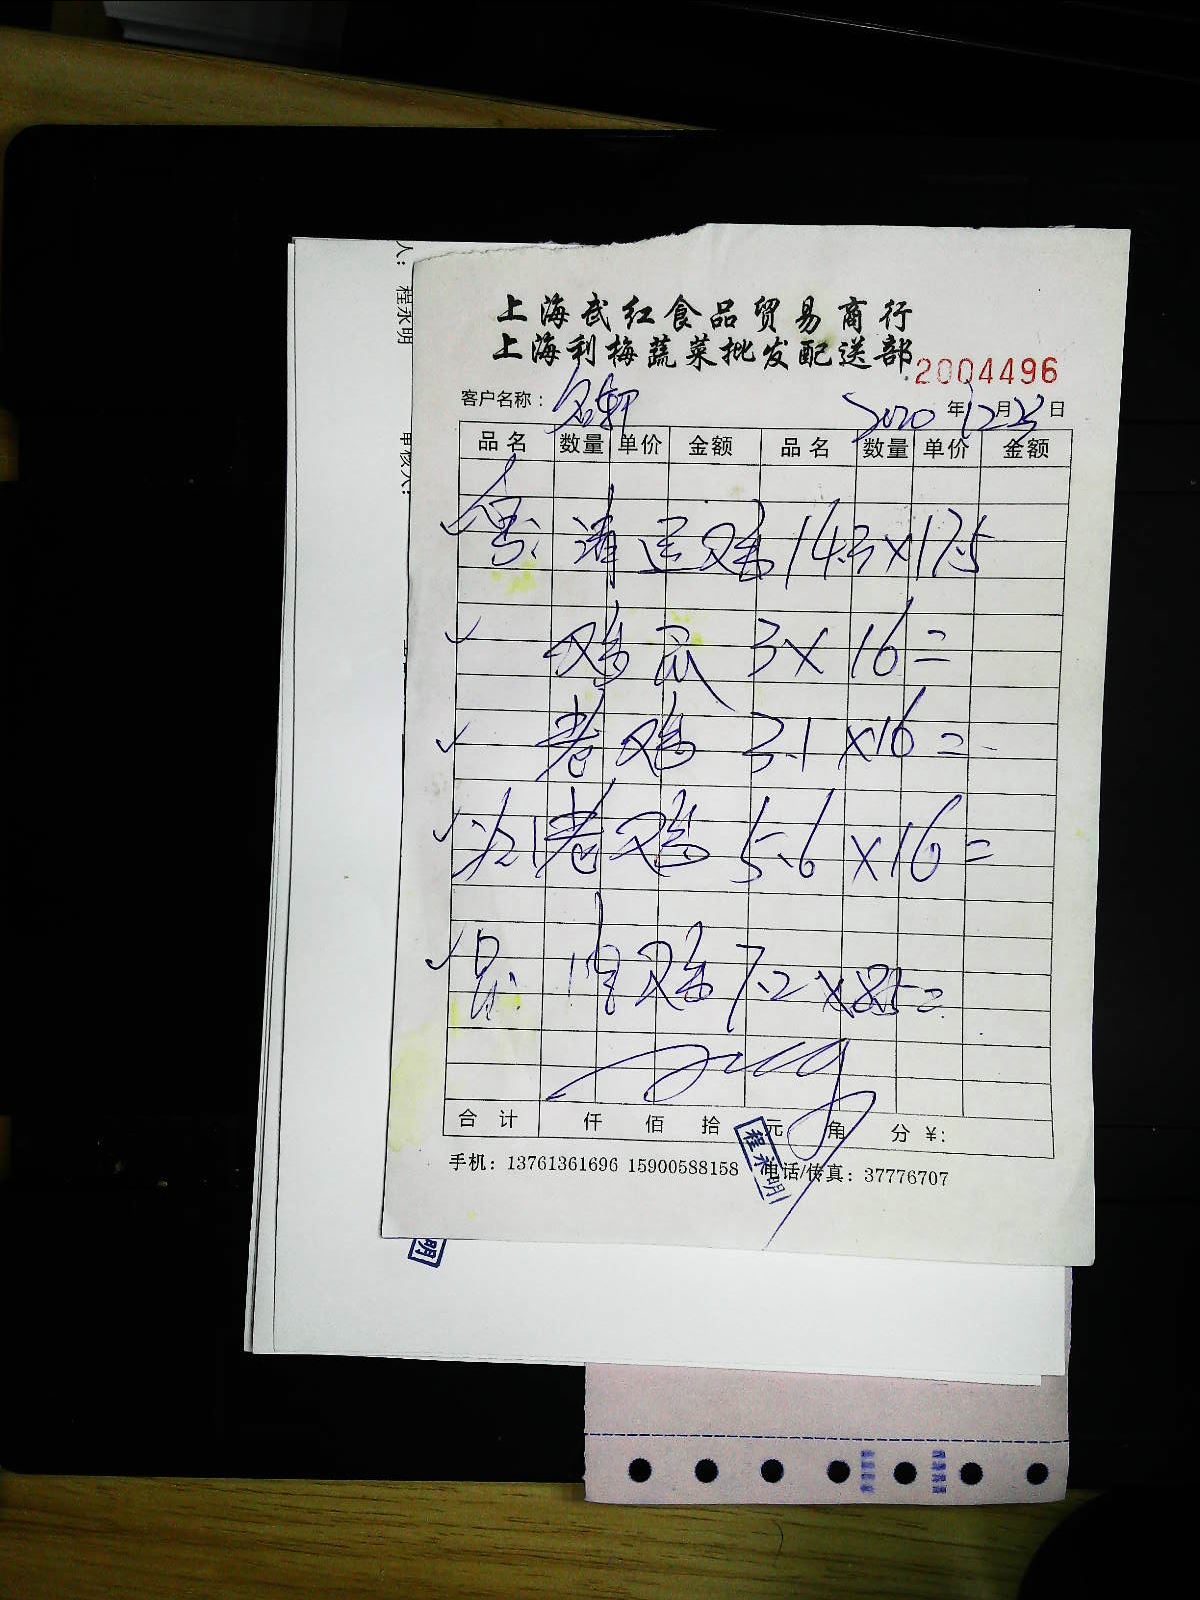 人：程永明
审核人：
上海武红食品贸易商行
上海利梅蔬菜批发配送部
2004496
客户名称： 名轩 2020年12月23日
品名 数量 单价 金额 品名 数量 单价 金额
清远鸡 14.3×17.5
鸡爪 3×16=
老鸡 3.1×16=
老鸡 5.6×16=
鸡 7.2×8.5=
合计 仟 佰 拾 元 角 分 ¥:
程永明
手机：13761361696 15900588158 电话/传真：37776707
明